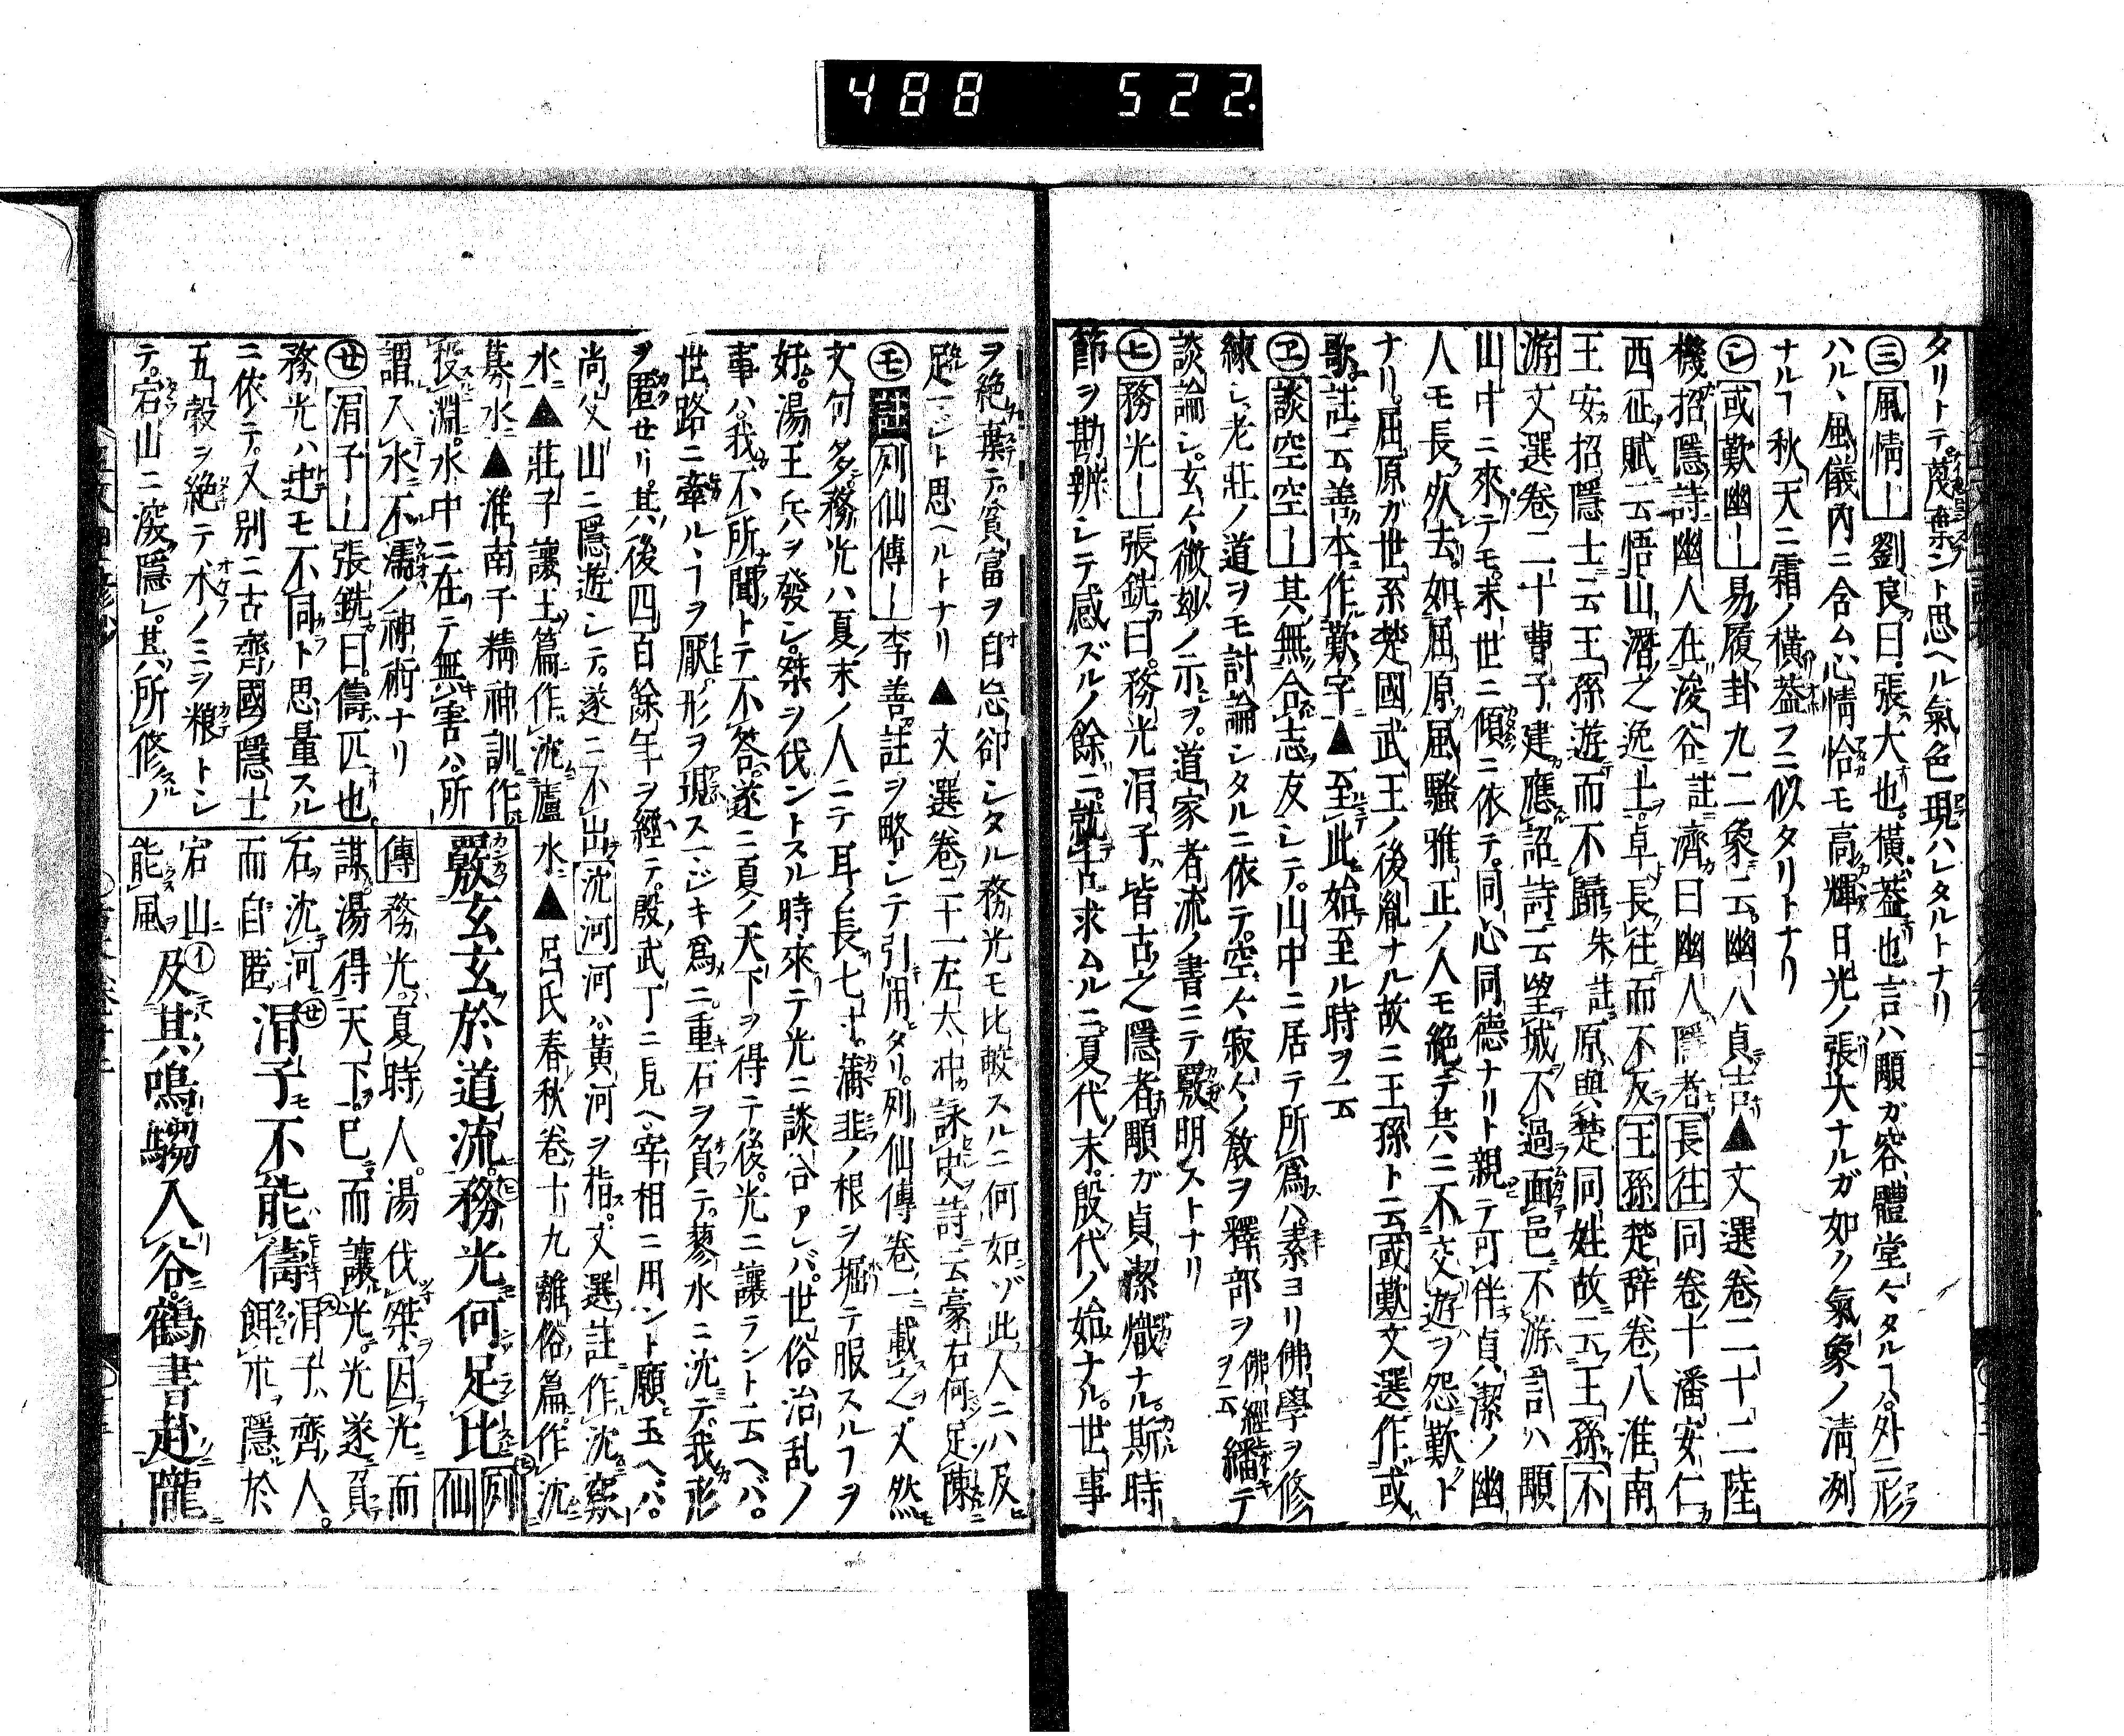 488 522
タリトテ蔑棄ント思ヘル氣色現ハレタルトナリ
㊂風情ー劉良曰張大也橫葢也言ハ顒ガ容體堂々タルヿハ外ニ形
ハル丶風儀內ニ含ム心情恰モ高輝日光ノ張大ナルガ如ク氣象ノ淸洌
ナルヿ秋天ニ霜ノ橫葢フニ似タリトナリ
或歎幽ー易履卦九二象云幽人貞吉▲文選卷二十二陸
機招隱詩幽人在浚谷註濟曰幽人隱者長往同卷十潘安仁
西征賦云悟山潛之逸士卓長往而不反王孫楚辞卷八淮南
王安招隱士云王孫遊而不歸朱註原與楚同姓故云王孫不
游文選卷二十曹子建應詔詩云望城不過面邑不游言ハ顒
山中ニ來テモ末世ニ傾ニ依テ同心同德ナリト親テ可伴貞潔ノ幽
人モ長久去如屈原風騷雅正ノ人モ絶テ共ニ不交遊ヲ怨歎ト
ナリ屈原ガ世系楚國武王ノ後胤ナル故ニ王孫ト云或歎文選作或
歌註云善本作歎字▲至此始至ル時ヲ云
㋓談空空ー其無合志友シテ山中ニ居テ所爲ハ素ヨリ佛學ヲ修
練シ老莊ノ道ヲモ討論シタルニ依テ空々寂々ノ敎ヲ釋部ヲ佛經ヲ云繙テ
談論シ玄々微妙ノ示ヲ道家者流ノ書ニテ覈明ストナリ
㋪務光ー張銑曰務光涓子皆古之隱者顒ガ貞潔熾ナル斯時
節ヲ勘辨シテ感ズルノ餘ニ就古求ムルニ夏代末殷代ノ始ナル世事
ヲ絶棄テ貧富ヲ自忘卻シタル務光モ比較スルニ何如ゾ此人ニハ反
跪ーント思ヘルトナリ▲文選卷二十一左太冲詠史詩云豪右何足陳
㋲註列仙傳ー李善註ヲ略シテ引用タリ列仙傳卷一載之又然
文句多務光ハ夏末ノ人ニテ耳ノ長七寸蒲韮ノ根ヲ堀テ服スルヿヲ
好湯王兵ヲ發シ桀ヲ伐ントスル時來テ光ニ談合アレバ世俗治乱ノ
事ハ我不所聞トテ不答遂ニ夏ノ天下ヲ得テ後光ニ讓ラント云ヘバ
世路ニ牽ル丶ヿヲ厭形ヲ現スマジキ爲ニ重石ヲ負テ蓼水ニ沈テ我形
ヲ匿セリ其後四百餘年ヲ經テ殷武丁ニ見ヘ宰相ニ用ント願玉ヘバ
尚父山ニ隱遊シテ遂ニ不出沈河河ハ黃河ヲ指文選註作沈窾
水▲莊子讓王篇作沈廬水▲呂氏春秋卷十九離俗篇作沈
募水▲淮南子精神訓作
投淵水中ニ在テ無害ハ所
謂入水不濡ノ神術ナリ
㋝涓子ー張銑曰儔匹也
務光ハ迚モ不同ト思量スル
ニ依テ又別ニ古齊國ノ隱士
五穀ヲ絶テ朮ノミヲ粮トシ
テ宕山ニ深隱レ其所修ノ
覈玄玄於道流務光何足比列仙
傳務光夏時人湯伐桀因光而
謀湯得天下已而讓光光遂負
石沈河
而自匿
涓子不能儔
涓子齊人
餌朮隱於
宕山
能風
及其鳴騶入谷鶴書赴隴